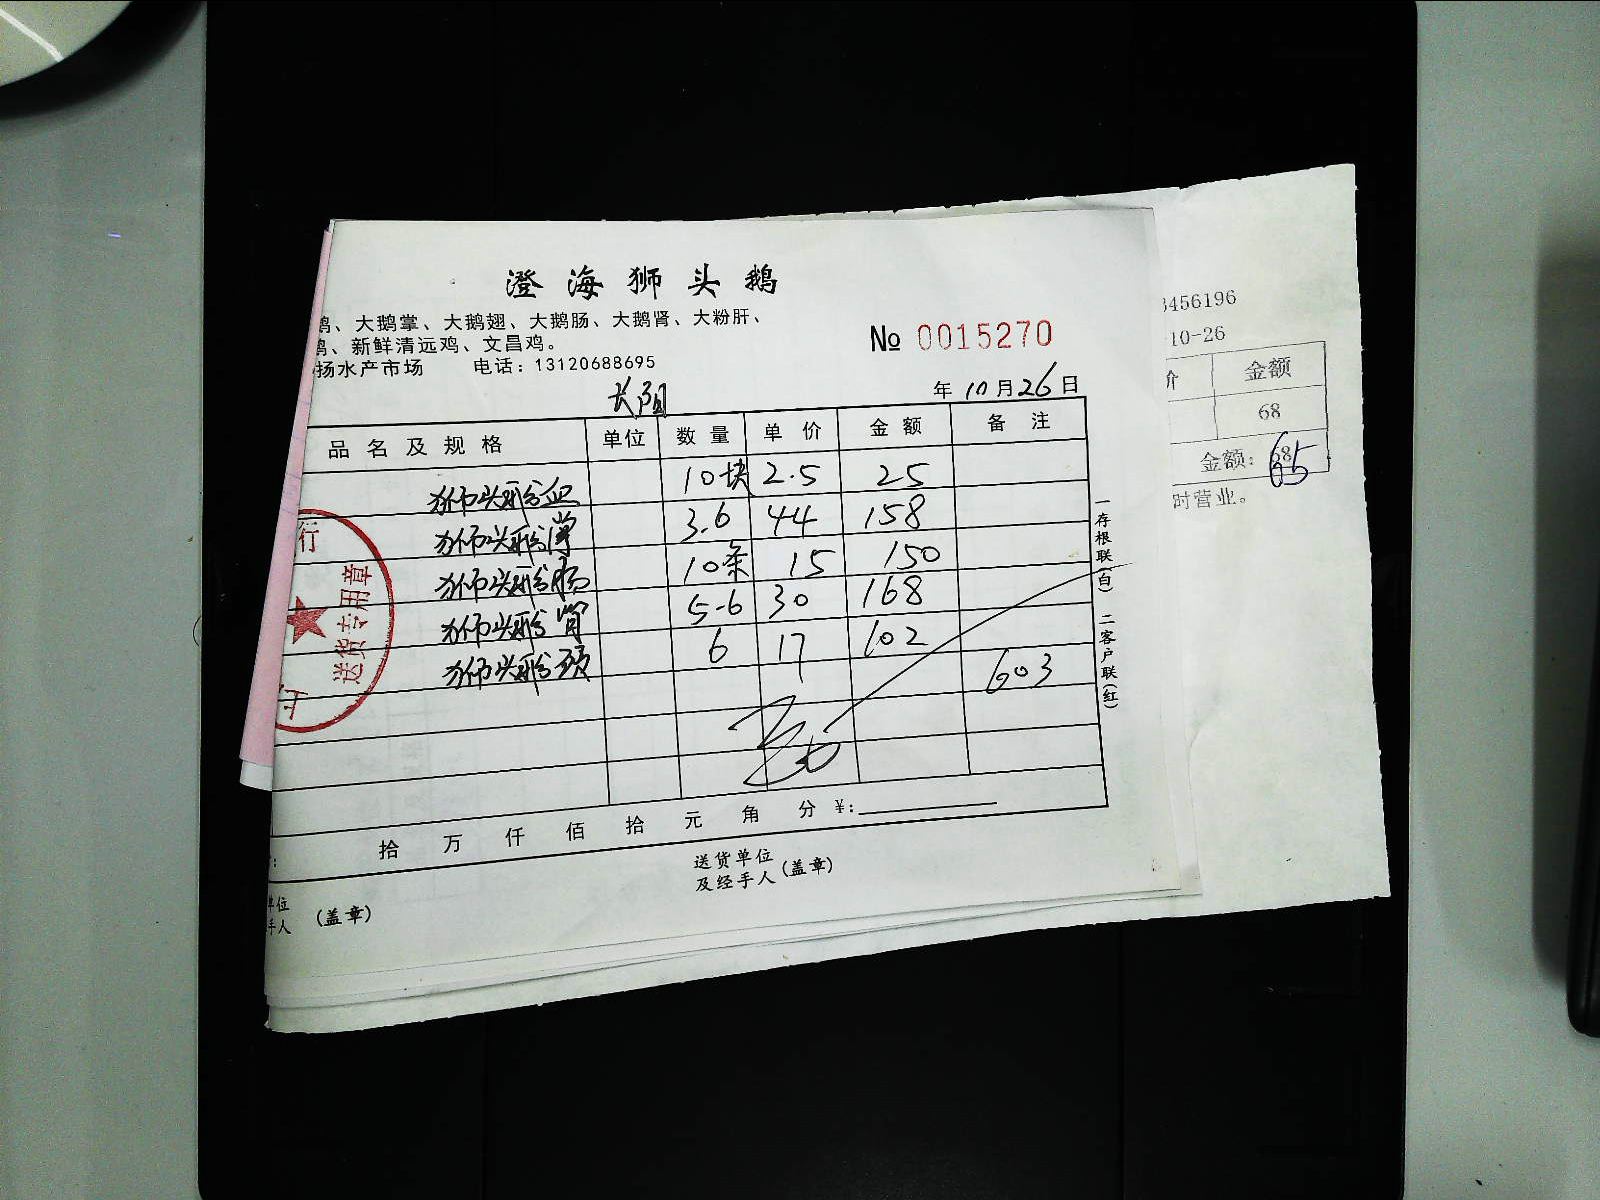 澄海狮头鹅
鹅、大鹅掌、大鹅翅、大鹅肠、大鹅肾、大粉肝、
鹅、新鲜清远鸡、文昌鸡。
扬水产市场 电话：13120688695
№ 0015270
长阳
年 10 月 26 日
品名及规格 单位 数量 单价 金额 备注
狮头鹅血 10块 2.5 25
狮头鹅掌 3.6 44 158
狮头鹅肠 10条 15 150
狮头鹅肾 5.6 30 168
狮头鹅头 6 17 102
603
拾 万 仟 佰 拾 元 角 分 ¥:
送货单位
及经手人（盖章）
单位
手人 （盖章）
一存根联（白） 二客户联（红）
行
送货专用章
3456196
10-26
价 金额
68
金额: 65
时营业。